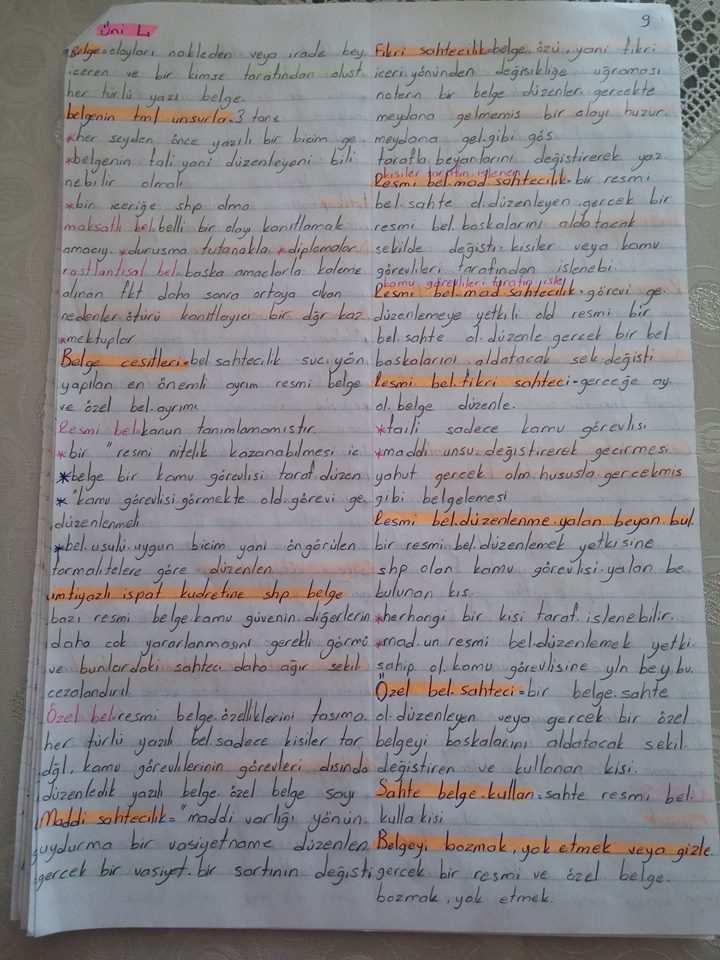 Üni 4
9
Belge=olayları nakleden veya irade bey.
içeren ve bir kimse tarafından oluşt
her türlü yazı belge.
belgenin tml unsurla.3 tane
*her şeyden önce yazılı bir biçim ge.
*belgenin faili yani düzenleyeni bili
nebilir olmalı
*bir içeriğe shp olma
maksatlı bel.belli bir olayı kanıtlamak
amacıy. *duruşma tutanakla. *diplomalar
rastlantısal bel.başka amaçlarla kaleme
alınan fkt daha sonra ortaya çıkan
nedenler.ötürü kanıtlayıcı bir dğr kaz.
*mektuplar
Belge çeşitleri=bel sahtecilik suçı.yön.
yapılan en önemli ayrım resmi belge
ve özel bel.ayrımı
Resmi bel.kanun tanımlamamıştır.
*bir " resmi nitelik kazanabilmesi iç
*belge bir kamu görevlisi taraf.düzen
* "kamu görevlisi.görmekte old.görevi ge.
düzenlenmeli
*bel.usulü.uygun biçim yani öngörülen
formalitelere göre düzenlen.
imtiyazlı ispat kudretine shp belge
bazı resmi belge.kamu güvenin.diğerlerin
daha çok yararlanmasını gerekli görmü
ve bunlardaki sahteci daha ağır şekil
cezalandırıl
Özel bel.resmi belge.özelliklerini taşıma.
her türlü yazılı bel.sadece kişiler tar
dğl. kamu görevlilerinin görevleri dışında
düzenledik yazılı belge.özel belge sayı
Maddi sahtecilik="maddi varlığı yönün.
uydurma bir vasiyetname düzenlen.
gerçek bir vasiyet.bir şartının değişti
Fikri sahtecilik=belge.özü.yani fikri
içeri.yönünden değişikliğe uğraması
noterin bir belge düzenler.gerçekte
meydana gelmemiş bir olayı huzur.
meydana gel.gibi gös.
tarafla.beyanlarını değiştirerek yaz.
kişiler taraftın işlenen
Resmi bel.mad sahtecilik=bir resmi
bel.sahte o.düzenleyen.gerçek bir
resmi bel.başkalarını aldatacak
şekilde değişti.kişiler veya kamu
görevlileri tarafından işlenebi
kamu görevlileri taraftın işle
Resmi bel.mad sahtecilik=görevi ge.
düzenlemeye yetkili old resmi bir
bel.sahte ol.düzenle gerçek bir bel
başkalarını aldatacak şek.değişti
Resmi bel.fikri sahteci=gerçeğe ay.
ol.belge düzenle.
*faili sadece kamu görevlisi
*maddi unsu.değiştirerek geçirmesi
yahut gerçek olm.hususla.gerçekmiş
gibi belgelemesi
Resmi bel.düzenlenme.yalan beyan.bul.
bir resmi bel.düzenlemek yetkisine
shp olan kamu görevlisi.yalan be
bulunan kis.
*herhangi bir kişi taraf.işlenebilir.
*mad.un resmi bel.düzenlemek yetki.
sahip ol.kamu görevlisine yln bey.bu.
Özel bel.sahteci=bir belge.sahte
ol.düzenleyen veya gerçek bir özel
belgeyi başkalarını aldatacak şekil.
değiştiren ve kullanan kişi.
Sahte belge.kullan=sahte resmi bel.
kulla kişi
Belgeyi bozmak, yok etmek veya gizle
gerçek bir resmi ve özel belge.
bozmak, yok etmek.